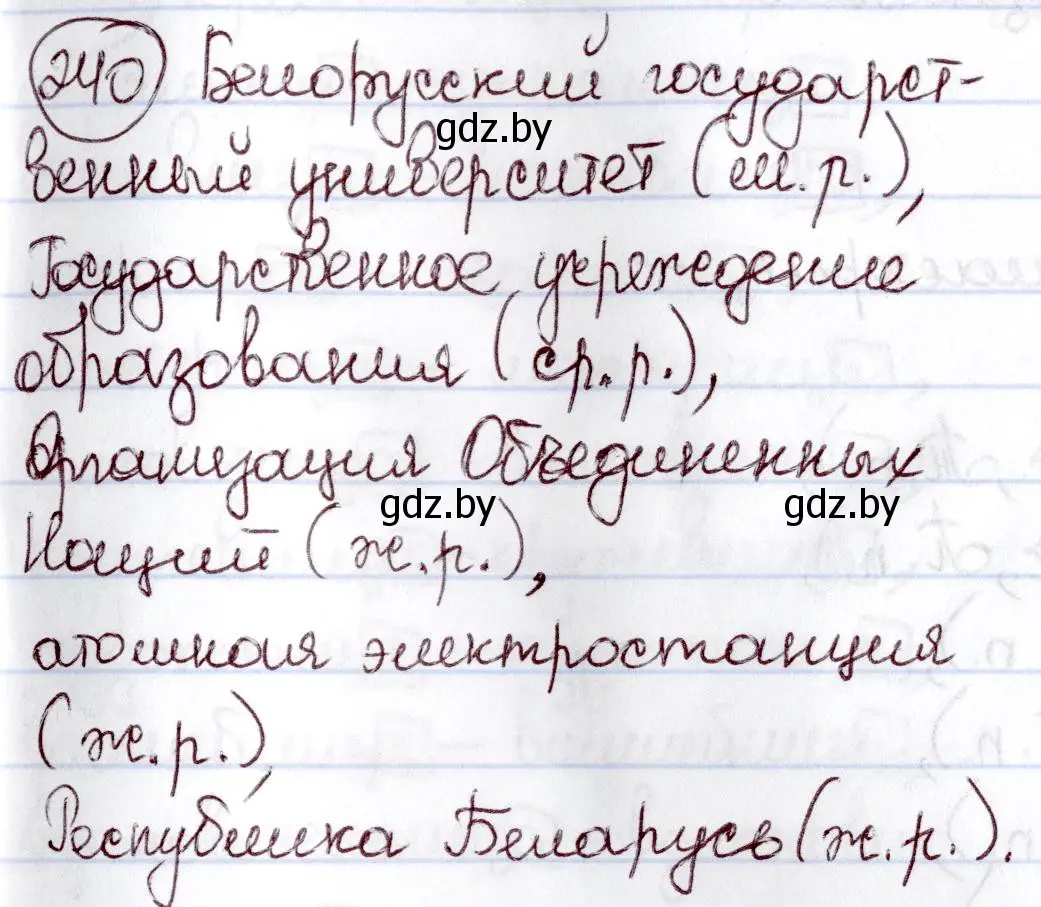 240 Белорусский государст-
gdz.by
венный университет (м.р.),
Государственное учреждение
образования (ср.р.),
Организация Объединенных
gdz.by gdz.by
Наций (ж.р.),
атомная электростанция
(ж.р.),
Республика Беларусь (ж.р.).